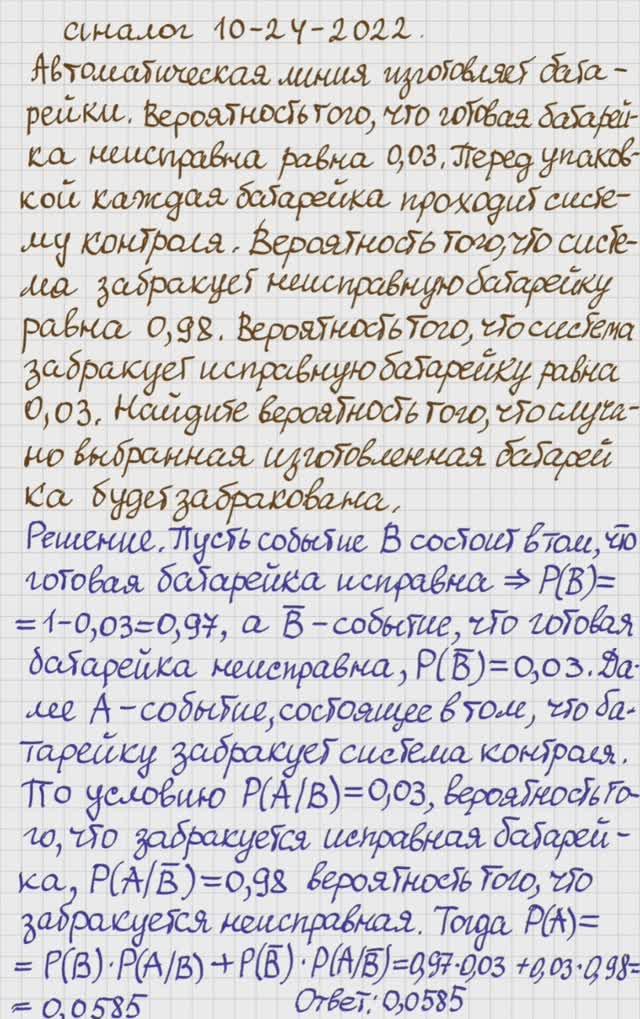 аналог 10-24-2022.
Автоматическая линия изготовляет бата-
рейки. Вероятность того, что готовая батарей-
ка неисправна равна 0,03. Перед упаков-
кой каждая батарейка проходит систе-
му контроля. Вероятность того, что систе-
ма забракует неисправную батарейку
равна 0,98. Вероятность того, что система
забракует исправную батарейку равна
0,03. Найдите вероятность того, что случа-
но выбранная изготовленная батарей
ка будет забракована.
Решение. Пусть событие B состоит в том, что
готовая батарейка исправна ⇒ P(B)=
=1-0,03=0,97, а B̅ – событие, что готовая
батарейка неисправна, P(B̅)=0,03. Да-
лее A – событие, состоящее в том, что ба-
тарейку забракует система контроля.
По условию P(A/B)=0,03, вероятность то-
го, что забракуется исправная батарей-
ка, P(A/B̅)=0,98 вероятность того, что
забракуется неисправная. Тогда P(A)=
= P(B)·P(A/B)+P(B̅)·P(A/B̅)=0,97·0,03+0,03·0,98=
= 0,0585 Ответ: 0,0585